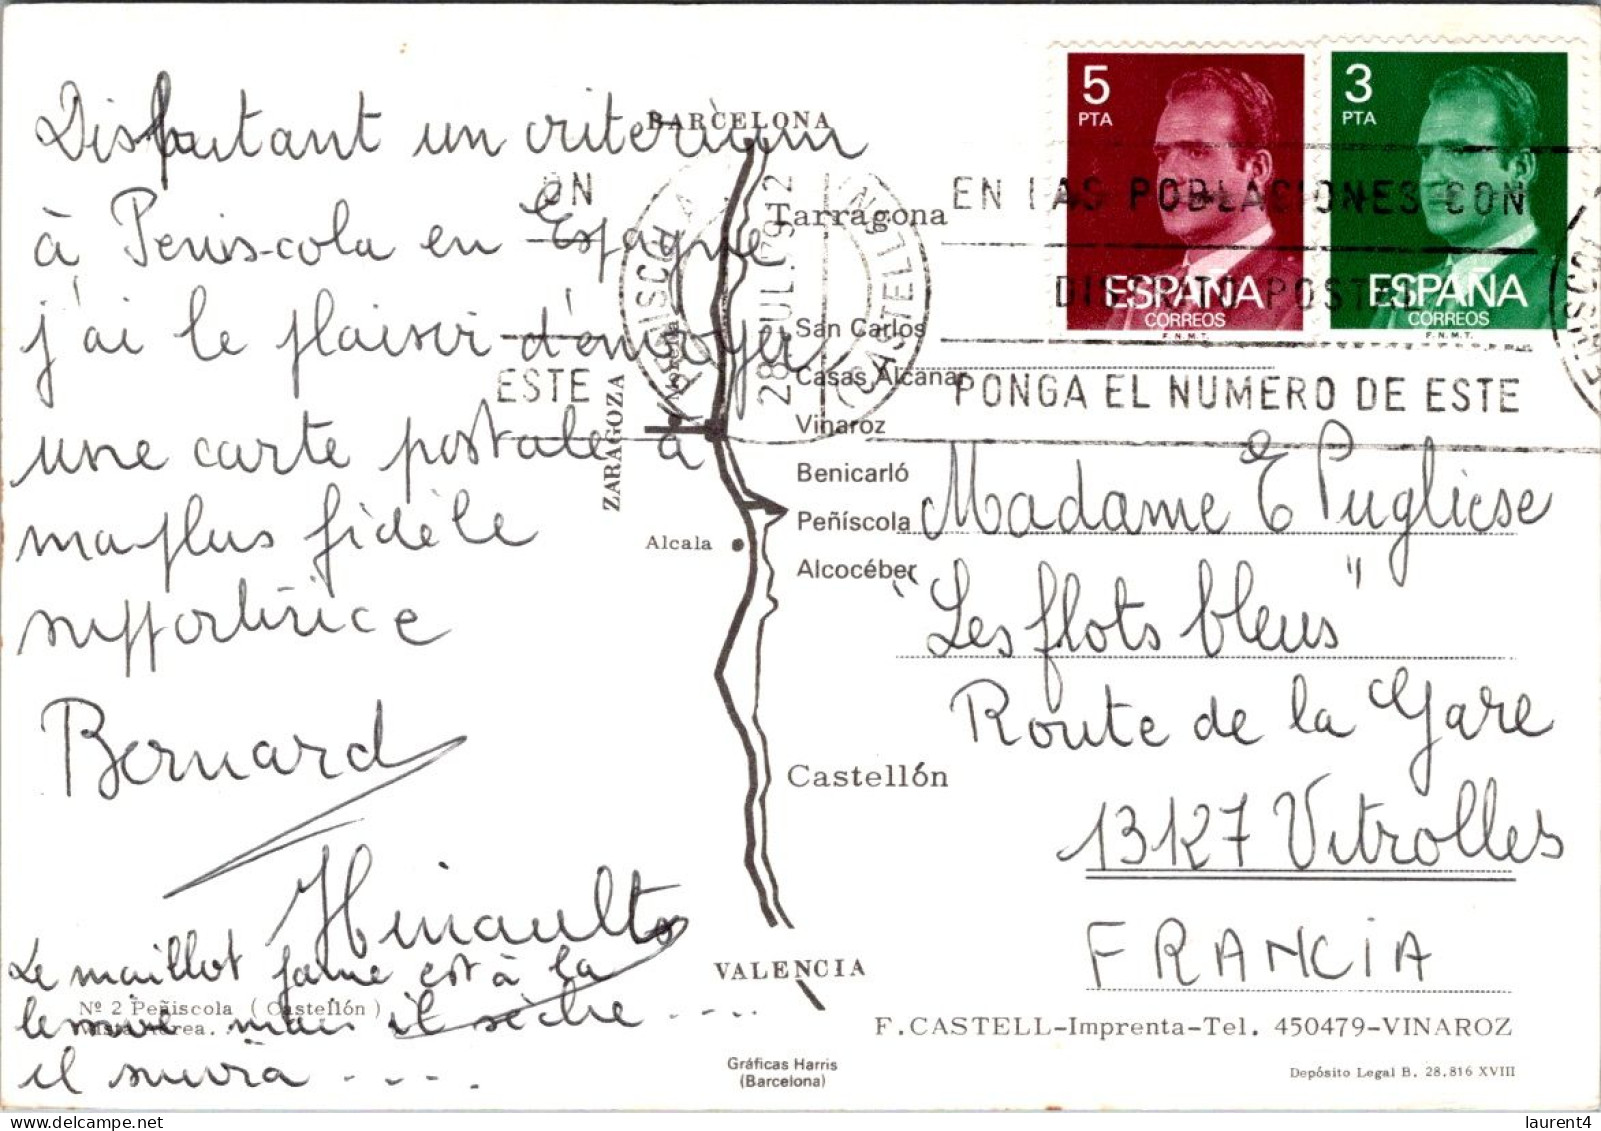 Disputant un criterium
à Penis-cola en Espagne
j'ai le plaisir d'envoyer
une carte postale à
ma plus fidèle
supportrice
Bernard
Hinault
Le maillot jaune est à la
mais il sèche ....
il suivra ....
BARCELONA
Tarragona
San Carlos
Casas Alcanar
Vinaroz
Benicarló
Peñíscola
Alcocéber
Morella
ZARAGOZA
Alcala
Castellón
VALENCIA
Nº 2 Peñiscola (Castellón)
Vista Aérea.
Gráficas Harris
(Barcelona)
5
PTA
ESPAÑA
CORREOS
F.N.M.T.
3
PTA
ESPAÑA
CORREOS
F.N.M.T.
ON
ESTE
PEÑISCOLA
(CASTELLON)
EN LAS POBLACIONES CON
DISTRITO POSTAL
PONGA EL NUMERO DE ESTE
Madame E Pugliese
"Les flots bleus"
Route de la Gare
13127 Vitrolles
FRANCIA
F. CASTELL-Imprenta-Tel. 450479-VINAROZ
Depósito Legal B. 28.816 XVIII
laurent4